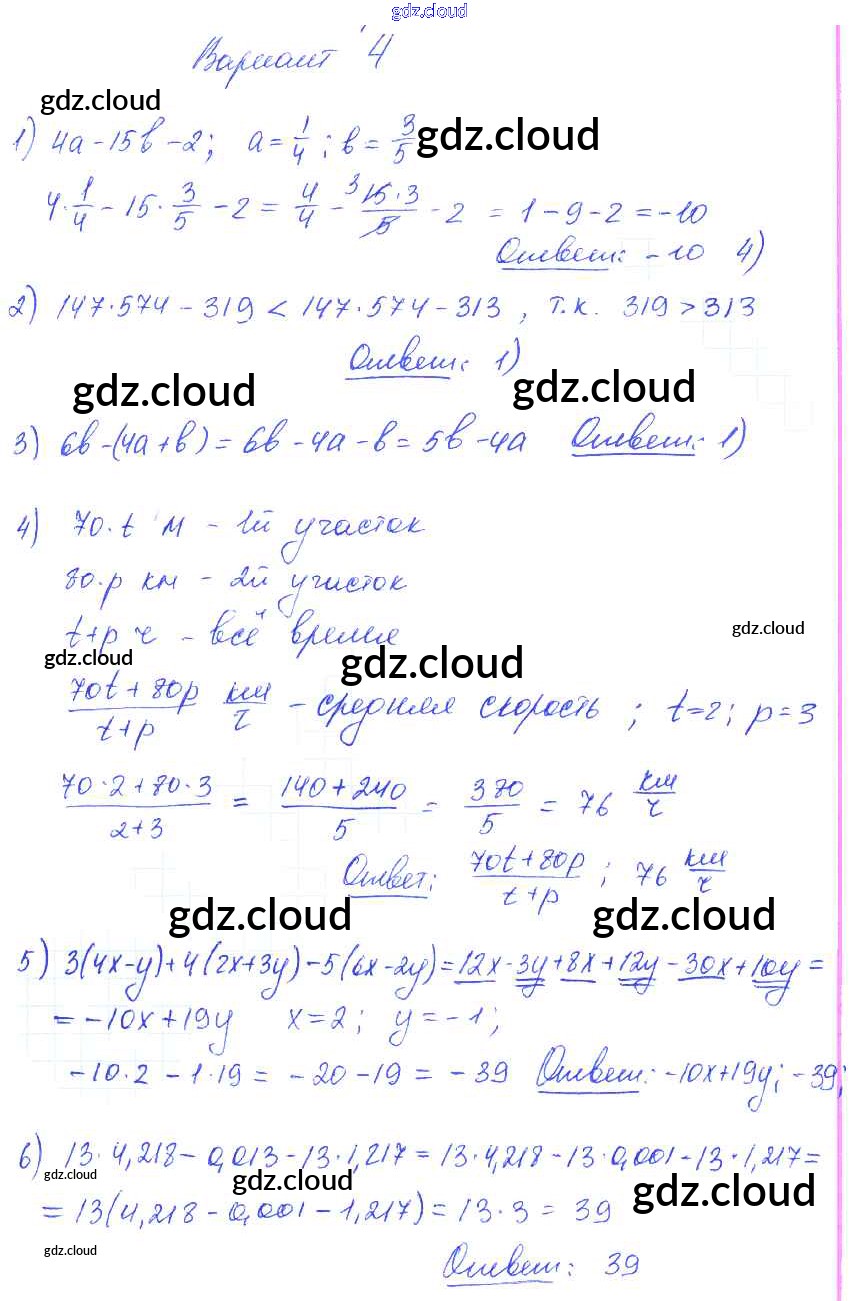 gdz.cloud
Вариант 4
gdz.cloud
1) 4a - 15b - 2; a = 1/4; b = 3/5 gdz.cloud
4·1/4 - 15·3/5 - 2 = 4/4 - 3 15·3/5 - 2 = 1 - 9 - 2 = -10
Ответ: -10 4)
2) 147·574 - 319 < 147·574 - 313, т.к. 319 > 313
Ответ: 1)
gdz.cloud gdz.cloud
3) 6b - (4a + b) = 6b - 4a - b = 5b - 4a Ответ: 1)
4) 70·t м - 1й участок
80·p км - 2й участок
t+p ч - всё время
gdz.cloud
gdz.cloud gdz.cloud
70t + 80p / t+p км/ч - средняя скорость; t=2; p=3
70·2 + 80·3 / 2+3 = 140 + 240 / 5 = 380/5 = 76 км/ч
Ответ: 70t + 80p / t+p; 76 км/ч
gdz.cloud gdz.cloud
5) 3(4x-y)+4(2x+3y)-5(6x-2y)=12x-3y+8x+12y-30x+10y=
= -10x+19y x=2; y=-1;
-10·2 - 1·19 = -20 - 19 = -39 Ответ: -10x+19y; -39;
6) 13·4,218 - 0,013 - 13·1,217 = 13·4,218 - 13·0,001 - 13·1,217 =
gdz.cloud gdz.cloud gdz.cloud
= 13(4,218 - 0,001 - 1,217) = 13·3 = 39
gdz.cloud
Ответ: 39